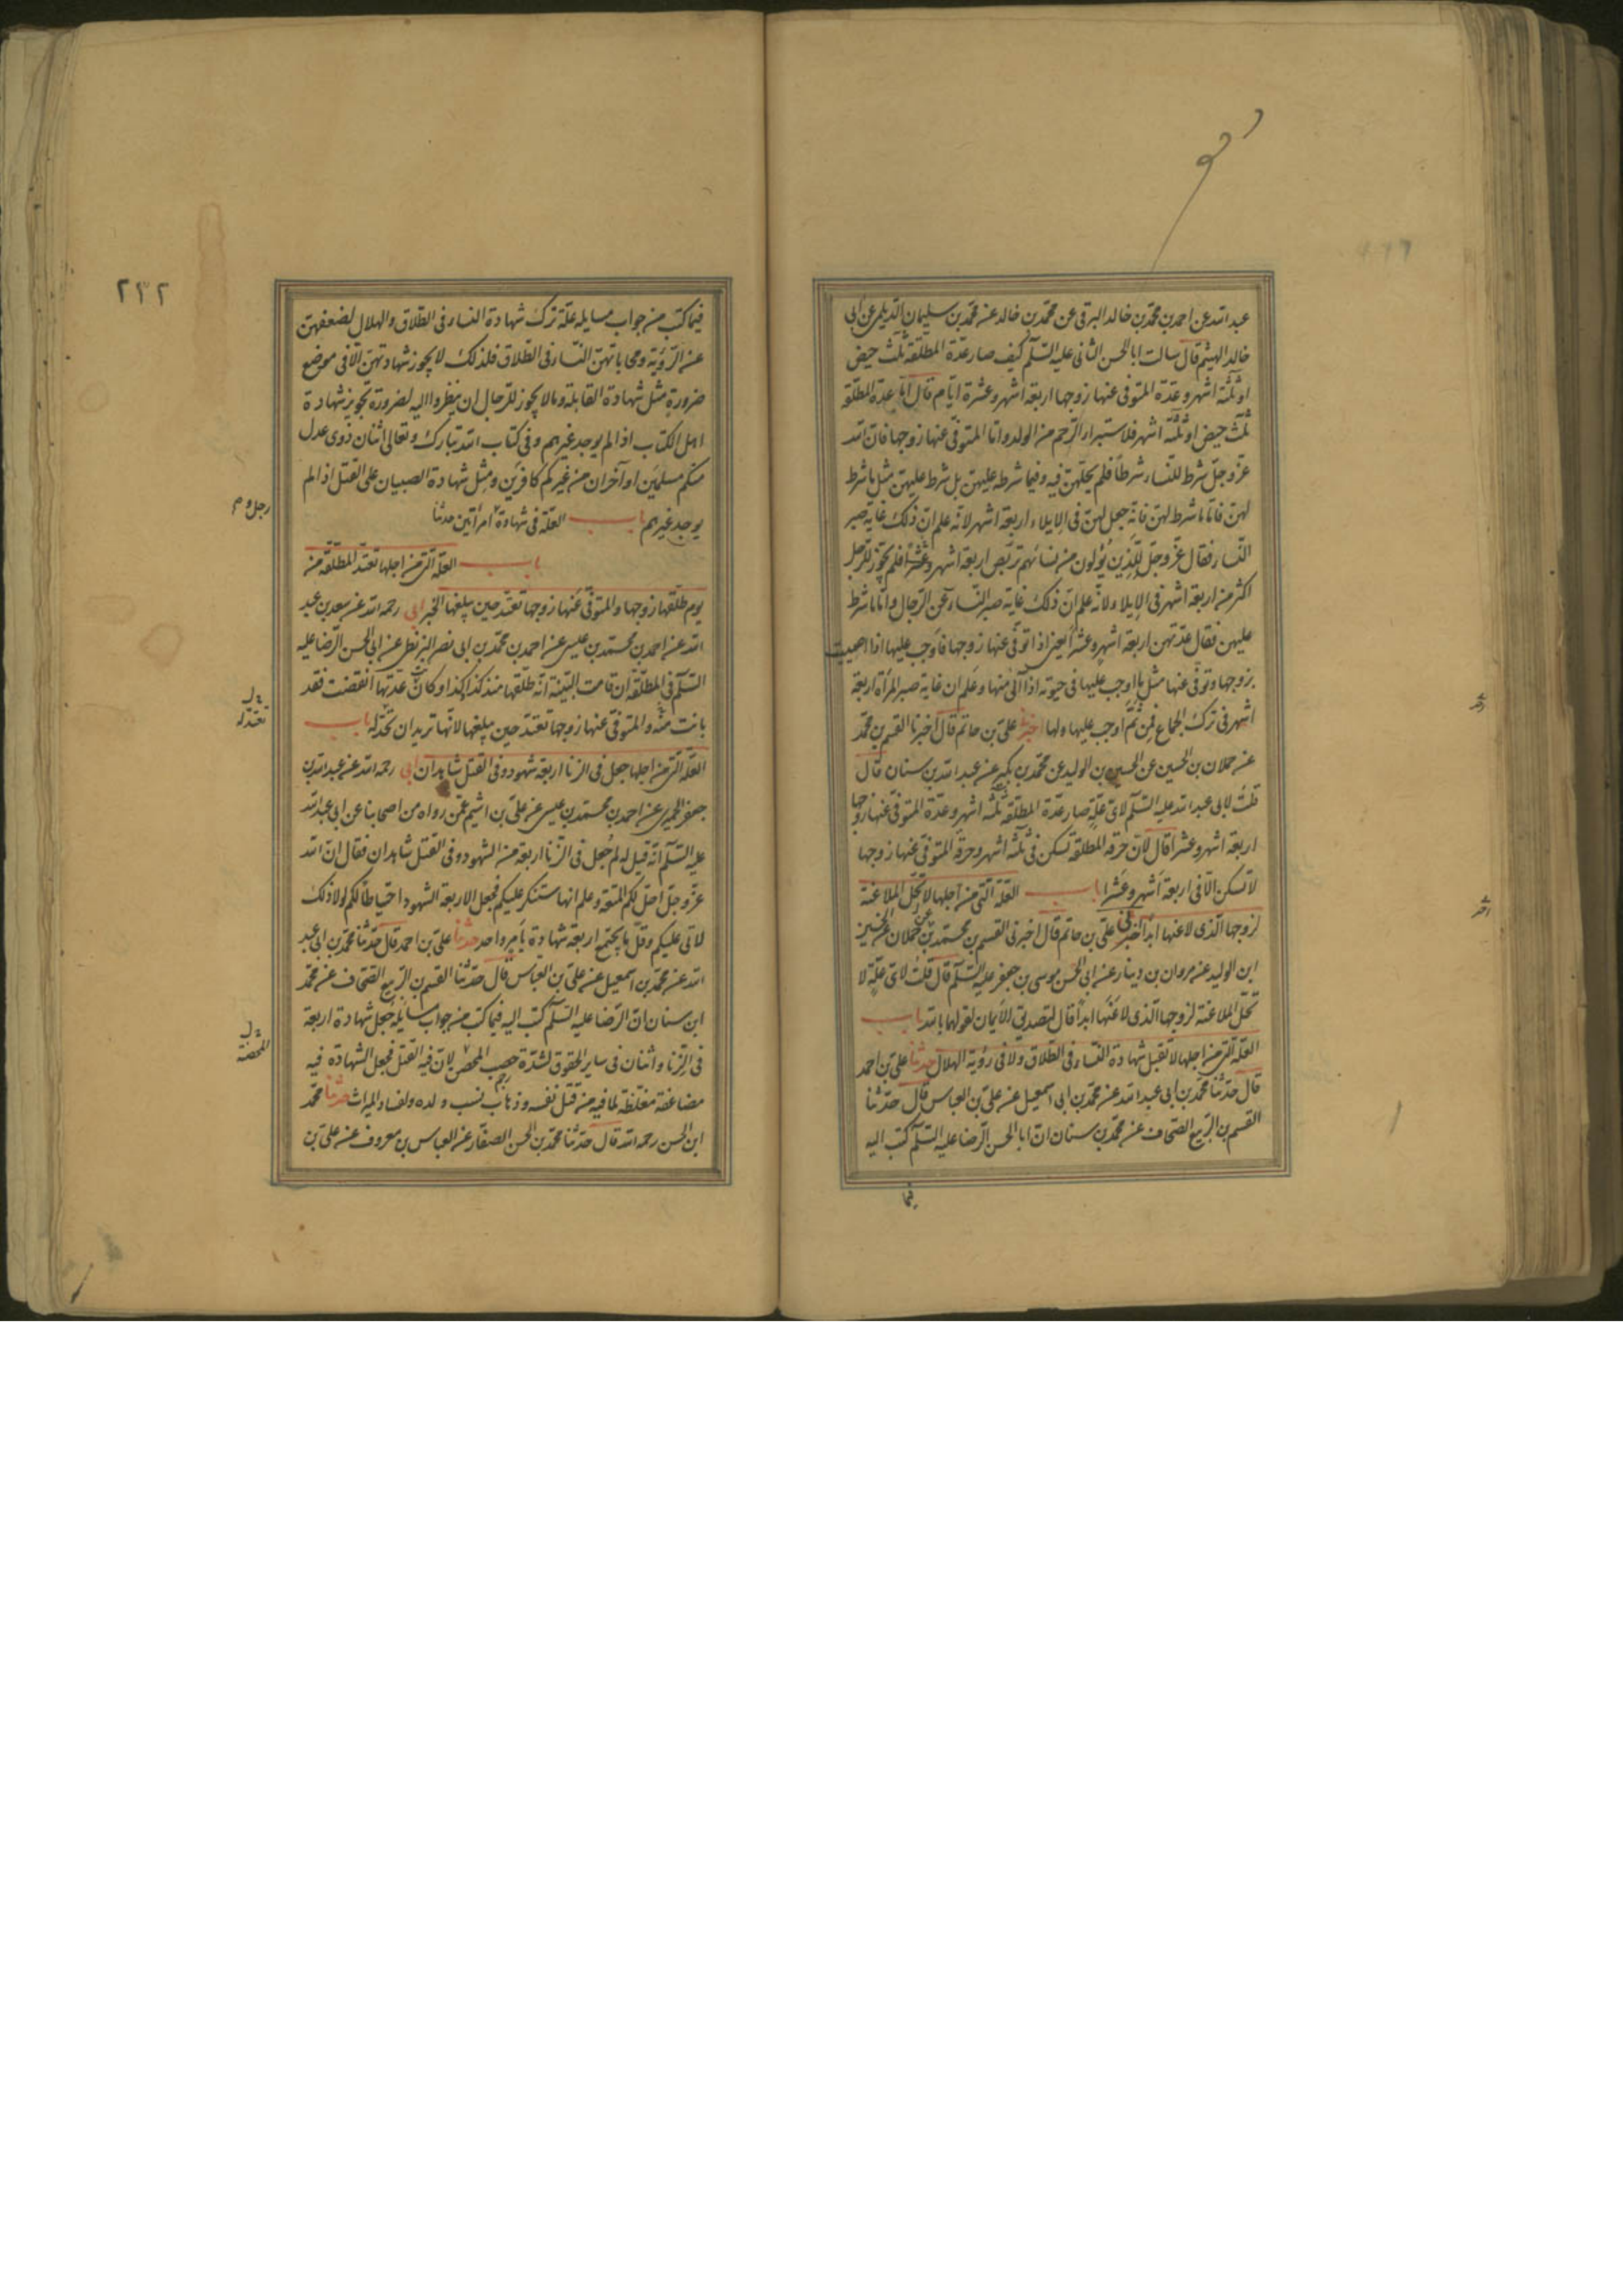 عبد الله عن احمد بن محمد بن خالد البرقى عن محمد بن خالد عن محمد بن سليمان الديلمى عن ابى
خالد الهيثم قال سالت ابا الحسن الثانى عليه السّلم كيف صار عدّة المطلّقة ثلث حيض
او ثلثة اشهر وعدّة المتوفى عنها زوجها اربعة اشهر وعشرة ايّام قال امّا عدة المطلّقة
ثلث حيض او ثلثة اشهر فلاستبراء الرّحم من الولد وامّا المتوفّى عنها زوجها فان الله
عزّ وجلّ شرط للنّساء شرطاً فلم يحلّهنّ فيه وفيما شرط عليهنّ بل شرط عليهنّ مثل ما شرط
لهنّ فامّا ما شرط لهنّ فانّه جعل لهنّ فى الايلاء اربعة اشهر لانّه علم انّ ذلك غاية صبر
النّساء فقال عزّ وجلّ للّذين يؤلون من نسائهم تربّص اربعة اشهر وعشراً فلم يجّوز للرّجل
اكثر من اربعة اشهر فى الايلاء ولانّه علم انّ ذلك غاية صبر النّساء عن الرّجال وامّا ما شرط
عليهن فقال عدّتهن اربعة اشهر وعشراً يعنى اذا توفّى عنها زوجها فاوجب عليها اذا اصيبت
بزوجها وتوفّى عنها مثل ما اوجب عليها فى حيوته اذا آلى منها وعلم ان غاية صبر المرأة اربعة
اشهر فى ترك الجماع فمن ثَمّ اوجب عليها ولها اخبرنا على بن حاتم قال اخبرنا القسم بن محمّد
عن حملان بن الحسين عن الحسين بن الوليد عن محمّد بن بكير عن عبد الله بن سنان قال
قلتُ لابى عبد الله عليه السّلم لاىّ علّةٍ صار عدّة المطلّقة ثلثة اشهر وعدّة المتوفّى عنها زوجها
اربعة اشهر وعشراً قال لانّ حرقة المطلّقة تسكن فى ثلثة اشهر وحرقة المتوفّى عنها زوجها
لا تسكن الّا فى اربعة اشهر وعشراً باب العلّة الّتى من اجلها لا تحلّ الملاعنة
لزوجها الّذى لاعنها ابداً اخبرنى على بن حاتم قال اخبرنى القسم بن محمّد عن حملان عن الحسين
ابن الوليد عن مروان بن دينار عن ابى الحسن موسى بن جعفر عليه السّلم قال قلتُ لاىّ علّةٍ لا
تحلّ الملاعنة لزوجها الّذى لاعَنَها ابداً قال لتصديق الأيمان لقولهما بالله باب
العلّة الّتى من اجلها لا تقبل شهادة النّساء فى الطّلاق ولا فى رؤية الهلال حدثنا علىّ بن احمد
قال حدّثنا محمّد بن ابى عبد الله عن محمّد بن ابى اسمعيل عن علىّ بن العباس قال حدّثنا
القسم بن الرّبيع الصّحاف عن محمّد بن سنان انّ ابا الحسن الرّضا عليه السّلم كتب اليه
فيما
٢٣٢
فيما كتب من جواب مسايله علّة ترك شهادة النساء فى الطّلاق والهلال لضعفهنّ
عن الرّؤية ومحاباتهنّ النّساء فى الطّلاق فلذلك لا يجوز شهادتهنّ الّا فى موضع
ضرورة مثل شهادة القابلة وما لا يجوز للرّجال ان ينظروا اليه لضرورة تجويز شهادة
اهل الكتاب اذا لم يوجد غيرهم وفى كتاب الله تبارك وتعالى اثنان ذوى عدل
منكم مسلمَين او آخران من غيركم كافرَين ومثل شهادة الصبيان على القتل اذا لم
يوجد غيرهم باب العلّة فى شهادة امرأتين حدثنا
رجل وم
باب العلّة الّتى من اجلها تعتدّ المطلّقة من
يوم طلّقها زوجها والمتوفّى عنها زوجها تعتدّ حين يبلغها الخبر ابى رحمه الله عن سعد بن عبد
الله عن احمد بن محمّد بن عيسى عن احمد بن محمّد بن ابى نصر البزنطى عن ابى الحسن الرّضا عليه
السّلم فى المطلّقة ان قامت البيّنة انّه طلّقها منذ كذا وكذا وكانت عدّتها انقضت فقد
بانت منه والمتوفّى عنها زوجها تعتدّ حين يبلغها لانّها تريد ان تحدّ له باب
تعتدّ له
العلّة الّتى من اجلها جعل فى الزنا اربعة شهود وفى القتل شاهدان ابى رحمه الله عن عبد الله بن
جعفر الحميرى عن احمد بن محمّد بن عيسى عن علىّ بن اشيم عمّن رواه من اصحابنا عن ابى عبد الله
عليه السّلم انّه قيل له لم جُعل فى الزّنا اربعة من الشهود وفى القتل شاهدان فقال انّ الله
عزّ وجلّ احلّ لكم المتعة وعلم انها ستنكر عليكم فجعل الاربعة الشهود احتياطاً لكم لولا ذلك
لاتى عليكم وقلّ ما يجتمع اربعة شهادة بامر واحد حدثنا علىّ بن احمد قال حدّثنا محمّد بن ابى عبد
الله عن محمّد بن اسمعيل عن علىّ بن العباس قال حدّثنا القسم بن الرّبيع الصّحاف عن محمّد
ابن سنان انّ الرّضا عليه السّلم كتب اليه فيما كتب من جواب مسايله جُعل شهادة اربعة
فى الزّنا واثنان فى ساير الحقوق لشدّة حصب المحصن لانّ فيه القتل فجعل الشهادة فيه
المحصنة
مضاعفة مغلّظة لما فيه من قتل نفسه وذهاب نسب ولده ولفساد الميراث حدثنا محمّد
ابن الحسن رحمه الله قال حدّثنا محمّد بن الحسن الصفّار عن العباس بن معروف عن علىّ بن